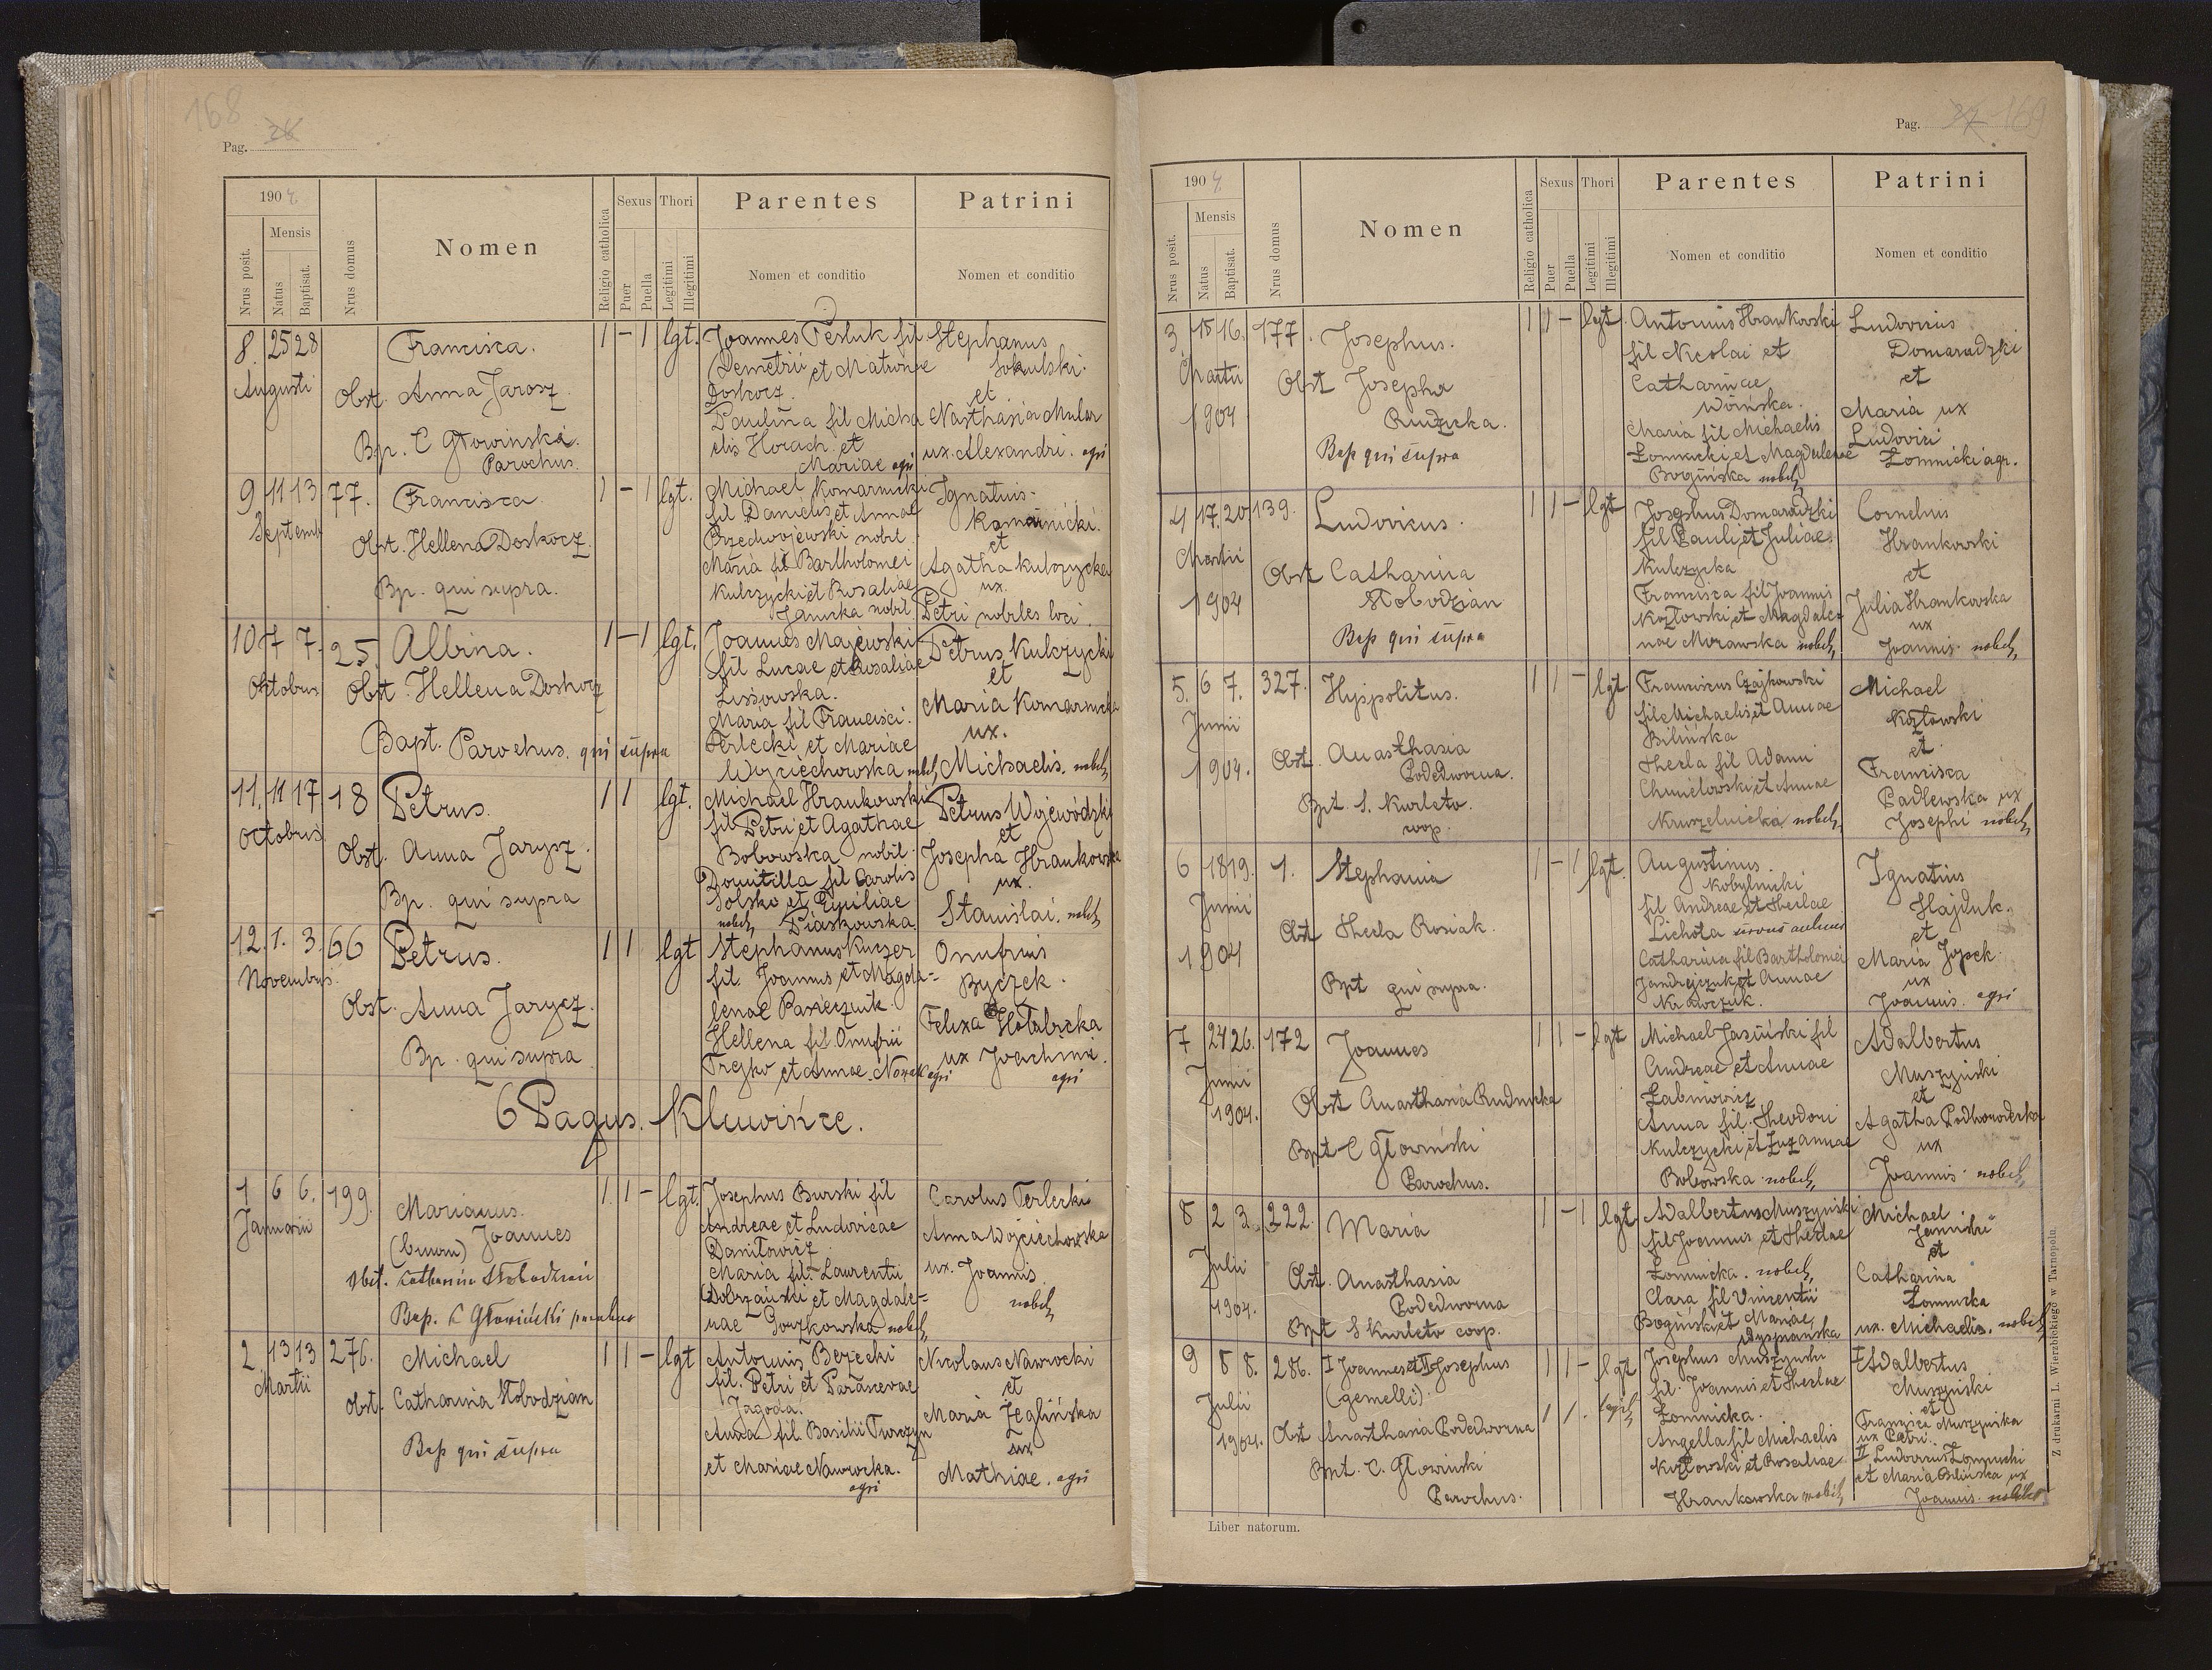 168
Pag. 26
1904
Nrus posit.
Mensis
Natus
Baptisat.
Nrus domus
Nomen
Religio catholica
Sexus
Puer
Puella
Thori
Legitimi
Illegitimi
Parentes
Nomen et conditio
Patrini
Nomen et conditio
8. 25 28
Augusti
Francisca.
Obst. Anna Jarosz
Bp. C Głowinski
Parochus.
1 - 1 lgt.
Joannes Perluk fil
Demetrii et Matronae
Doskocz.
Paulina fil Micha
elis Horach et
Mariae agri
Stephanus
Sokulski.
et
Nasthasia Mular
ux. Alexandri. agri
9 11 13 77.
Septemb
Francisca.
Obst. Hellena Doskocz
Bp. qui supra.
1 - 1 lgt.
Michael Komarnicki
fil Danielis et Annae
Przedwojewski nobil
Maria fil Bartholomei
Kulczycki et Rosaliae
Janicka nobil
Ignatius
Komarnicki.
et
Agatha Kulczycka
ux.
Petri nobiles loci
10 7 7. 25
Oktobris
Albina.
Obst. Hellena Doskocz
Bapt. Parochus. qui supra
1 - 1 lgt.
Joannes Majewski
fil Lucae et Rosaliae
Lissowska.
Maria fil Francisci
Terlecki et Mariae
Wojciechowska nobil,
Petrus Kulczycki
et
Maria Komarnicka
ux.
Michaelis. nobil,
11. 11 17 18
Octobris
Petrus.
Obst. Anna Jarysz.
Bp. qui supra
1 1 lgt.
Michael Hrankowski
fil Petri et Agathae
Bobowska nobil.
Domitilla fil Carolis
Solski et Emiliae
nobil, Piaskowska
Petrus Wojewódzki
et
Josepha Hrankowska
ux.
Stanislai. nobil,
12. 1. 3. 66
Novembris
Petrus.
Obst. Anna Jarycz.
Bp. qui supra
1 1 lgt
Stephanus Kuczer
fil. Joannis et Magda-
lenae Pasiecznik
Hellena fil. Onufrii
Trejko et Annae Nowak agri
Onufrius
Byczek.
et
Felixa Hołubicka
ux Joachimi.
agri
6 Pagus. Kluwińce.
1 6 6. 199.
Januarii
Marianus.
(binom) Joannes
Obst. Catharina Słobodzian
Bap. C Głowiński parochus
1. 1 - lgt.
Josephus Burski fil
Andreae et Ludovicae
Daniłowicz
Maria fil. Laurentii
Dobrzański et Magdale-
nae Gouzkowska nobil,
Carolus Terlecki
Anna Wojciechowska
ux. Joannis
nobil,
2. 13 13 276.
Martii
Michael
Obst. Catharina Słobodzian
Bap qui supra
1 1 - lgt
Antonius Berecki
fil. Petri et Parascevae
Jagoda.
Anna fil. Basilii Turczyn
et Mariae Nawrocka.
agri
Nicolaus Nawrocki
et
Maria Żeglińska
ux
Mathiae. agri
Pag. 27 169
1904
Nrus posit.
Mensis
Natus
Baptisat.
Nrus domus
Nomen
Religio catholica
Sexus
Puer
Puella
Thori
Legitimi
Illegitimi
Parentes
Nomen et conditio
Patrini
Nomen et conditio
3. 15 16. 177.
Martii
1904
Josephus.
Obst Josepha
Rudzicka.
Bap qui supra
1 1 - lgt.
Antonius Hrankowski
fil Nicolai et
Catharinae
Wóińska.
Maria fil Michaelis
Łomnicki et Magdalenae
Bogińska nobil,
Ludovicus
Domaradzki
et
Maria ux
Ludovici
Łomnicki agr.
4 17. 20 139.
Martii
1904
Ludovicus.
Obst Catharina
Słobodzian
Bap qui supra
1 1 - lgt
Josephus Domaradzki
fil Pauli et Juliae
Kulczycka
Francisca fil Joannis
Kozłowski et Magdale
nae Morawska nobil,
Cornelius
Hrankowski
et
Julia Hrankowska
ux
Joannis. nobil,
5. 6 7. 327.
Junii
1904.
Hyppolitus.
Obst. Anasthasia
Podedworna.
Bpt. S. Kurleto.
coop.
1 1 - lgt
Franciscus Czajkowski
fil Michaelis et Annae
Bilińska
Thecla fil Adami
Chmielowski et Annae
Kruszelnicka nobil,
Michael
Kozłowski
et
Francisca
Padlewska ux
Josephi nobil,
6 18 19. 1.
Junii
1904
Stephania
Obst Thecla Rosiak.
Bpt qui supra.
1 - 1 lgt.
Augustinus
Kobylnicki
fil Andreae et Theclae
Lichota
Catharina fil Bartholomei
Jandrejczuk et Annae
Krawczuk.
Ignatius
Hajduk.
et
Maria Jopek
ux
Joannis. agri
7 24 26. 172
Junii
1904.
Joannes
Obst Anasthasia Rudnicka
Bpt C Głowiński
Parochus.
1 1 - lgt
Michael Jasiński fil
Andreae et Annae
Łabinowicz
Anna fil. Theodori
Kulczycki et Zuzannae
Bobowska nobil,
Adalbertus
Muszyński
et
Agatha Podhorodecka
ux
Joannis. nobil,
8 2 3. 222.
Julii
1904.
Maria
Obst. Anasthasia
Podedworna
Bpt S Kurleto coop.
1 - 1 lgt
Adalbertus Muszynski
fil Joannis et Theclae
Łomnicka. nobil,
Clara fil Vincentii
Bogiński et Mariae
Michael
et
Catharina
Łomnicka
ux. Michaelis. nobil,
9 8 8. 286.
Julii
1904.
I Joannes et II Josephus
(gemelli)
Obst Anasthasia Podedworna
Bpt. C. Głowinski
Parochus.
1 1 - lgt
1 1.
Josephus Muszynski
fil. Joannis et Theclae
Łomnicka.
Angella fil Michaelis
Kozłowski et Rosaliae
Hrankowska nobil,
I Adalbertus
Muszyński
et
Francisca Muszyńska
ux Petri.
II Ludovicus Łomnicki
et Maria Bilińska ux
Joannis. nobiles
Liber natorum.
Z drukarni L. Wierzbickiego w Tarnopolu.